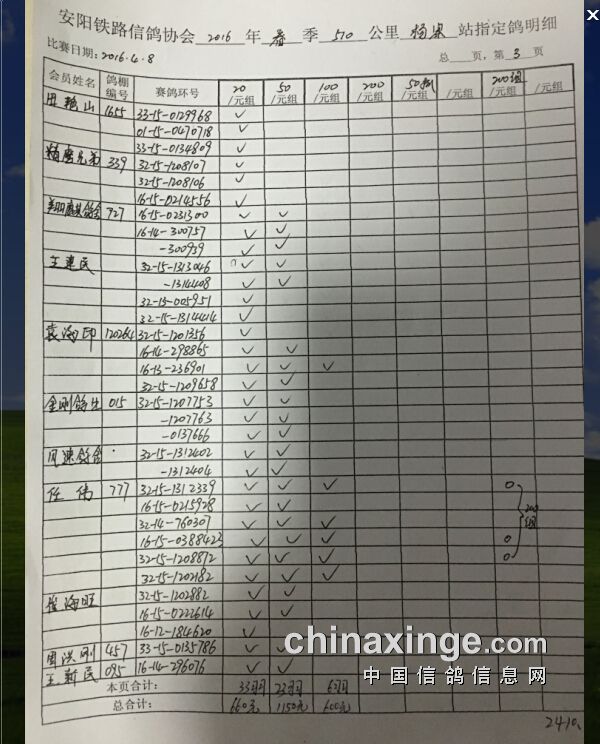 安阳铁路信鸽协会 2016 年 春 季 510 公里 杨梁 站指定鸽明细
比赛日期:2016.4.8 总 页,第 3 页
会员姓名 鸽棚编号 赛鸽环号 20/元组 50/元组 100/元组 200/元组 50/元组 /元组 200组/元组 /元组
田艳山 1655 33-15-0129968 ✓
01-15-0470718 ✓
33-15-0134809 ✓
兄弟 339 32-15-1208107 ✓
32-15-1208106 ✓
16-15-0214556 ✓
翔麒鸽舍 727 16-15-0231300 ✓ ✓
16-14-300757 ✓ ✓
-300939 ✓ ✓
王建民 32-15-1313046 ✓ ✓
-1314408 ✓ ✓
32-15-005951 ✓
32-15-1314414 ✓
袁海印 120264 32-15-1201356 ✓
16-14-298865 ✓ ✓
16-15-236901 ✓ ✓ ✓
32-15-1209658 ✓ ✓
金刚鸽舍 015 32-15-1207753 ✓ ✓
-1207763 ✓ ✓
-0137666 ✓ ✓
风速鸽舍 32-15-1312402 ✓ ✓
-1312404 ✓ ✓
任伟 777 32-15-1312339 ✓ ✓ ✓ ○
16-15-0215928 ✓ ✓ 200组
32-14-760307 ✓ ✓ ✓
16-15-0388422 ✓ ✓ ✓ ○
32-15-1208872 ✓ ✓ ✓ ○
32-15-1202182 ✓ ✓ ✓
崔海旺 32-15-1202882 ✓ ✓
16-15-0222614 ✓ ✓
16-12-1814620 ✓
周洪刚 457 33-15-0135786 ✓ ✓
王新民 095 16-14-296076 ✓ ✓
本页合计: 33羽 23羽 6羽
总合计: 660元 1150元 600元
2410
chinaxinge.com
中国信鸽信息网